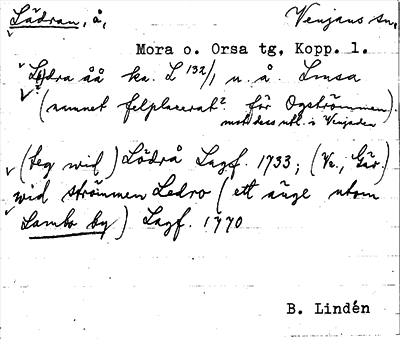 Lädran, å,   Venjans sn,
Mora o. Orsa tg, Kopp. l.
Lödra åå ka. L 132/1 u. å. Lmsa
(namnet felplacerat² för Ogströmmen).
mot dess utl. i Venjaden
(teg wid) Lödrå Lagf. 1733; (Ve., Går.)
wid strömmen Ledro (ett änge utom
Lambo by) Lagf. 1770
B. Lindén